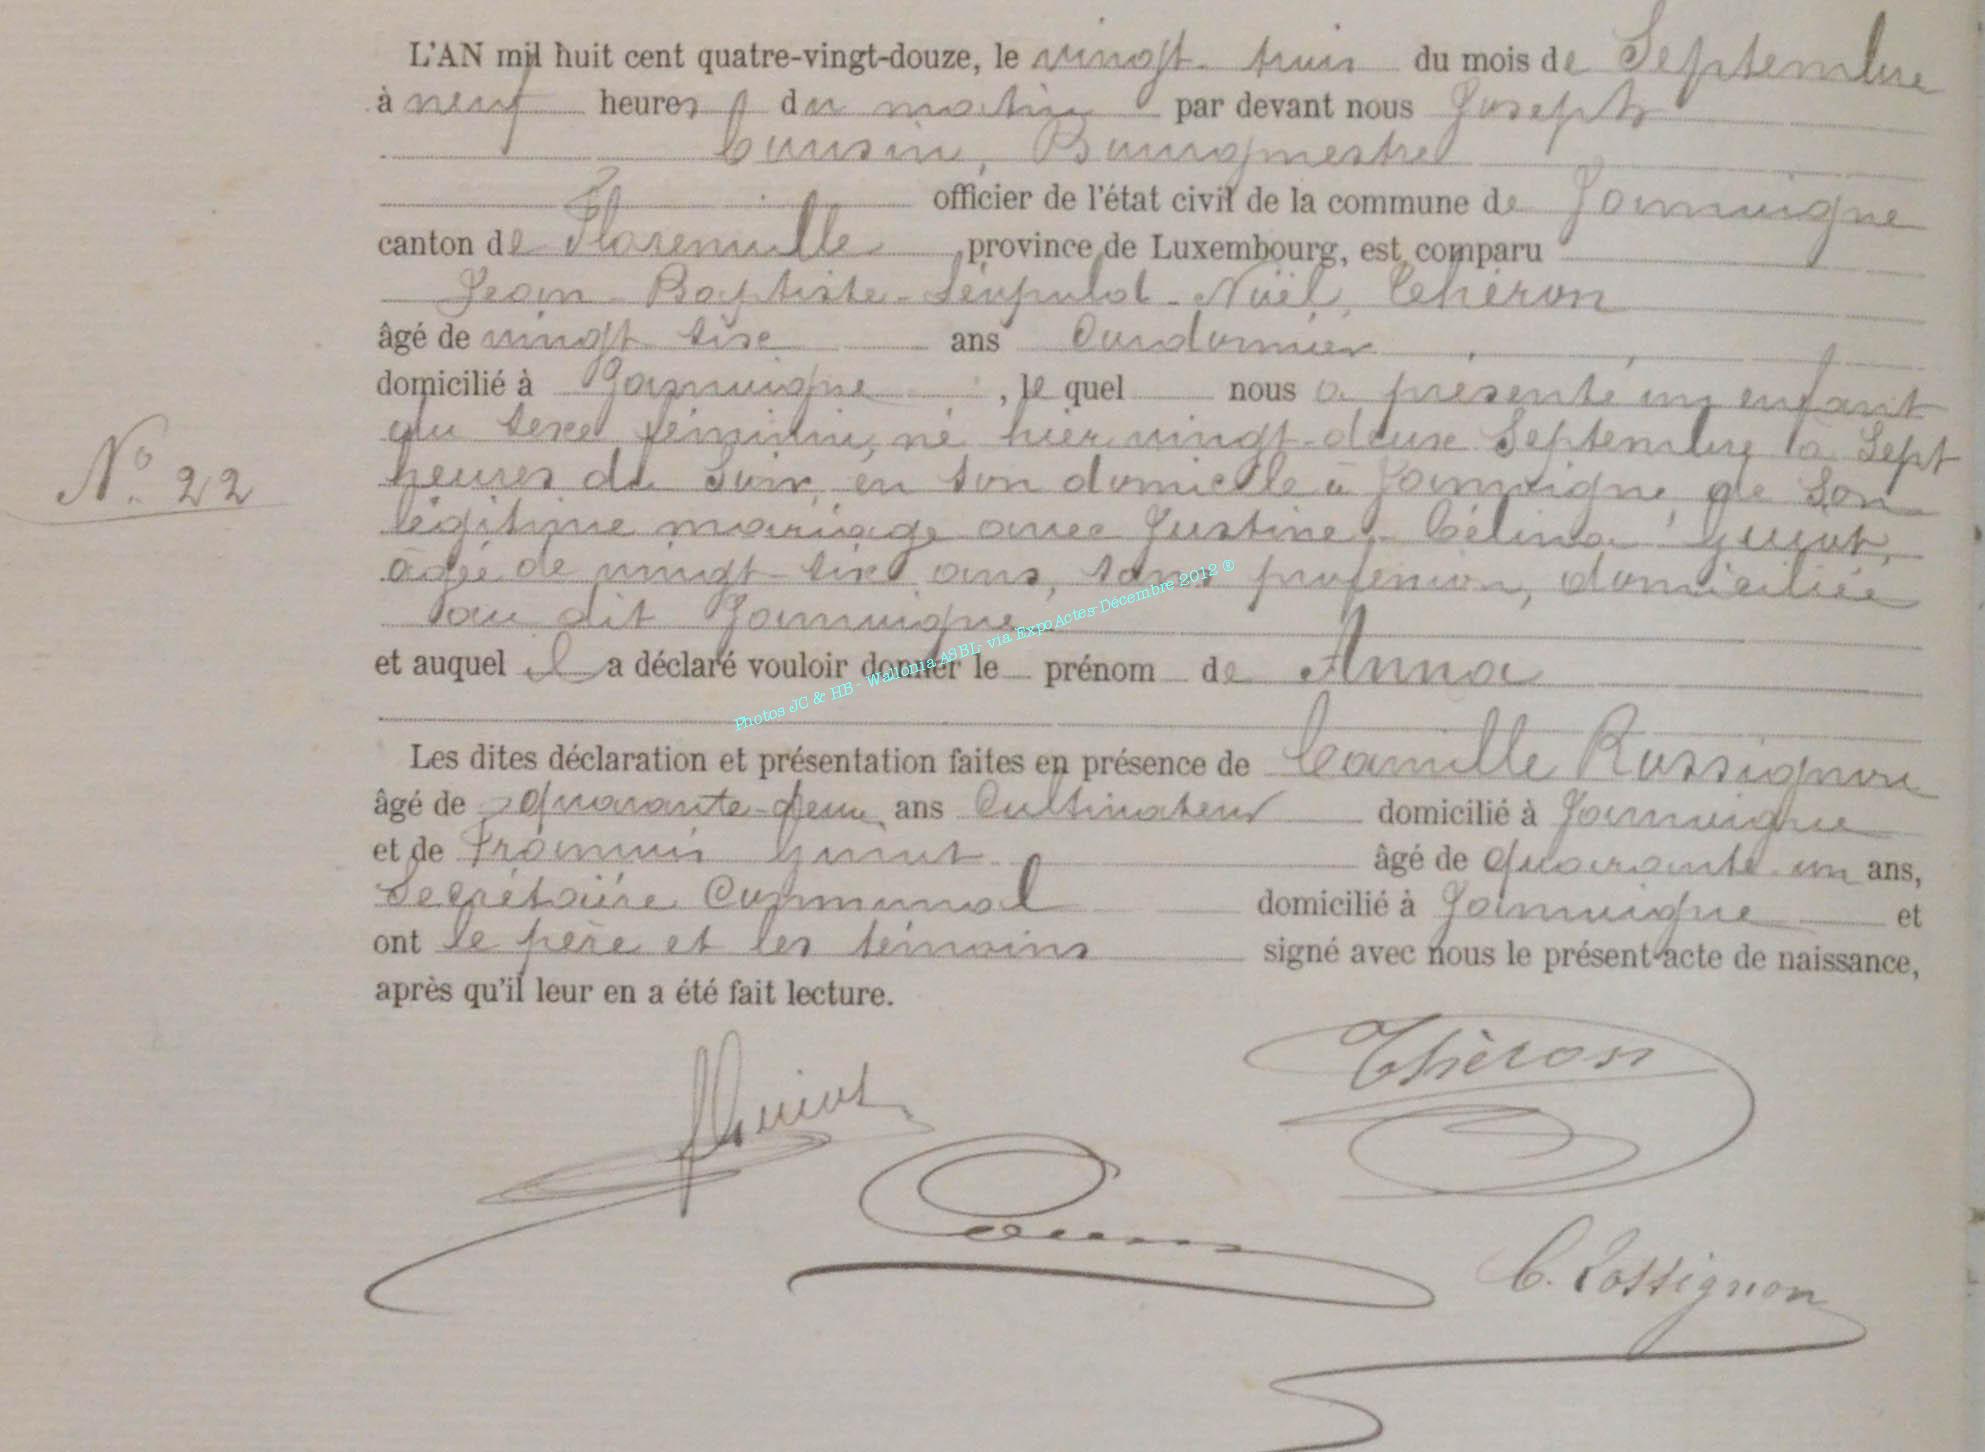 L'AN mil huit cent quatre-vingt-douze, le vingt-trois du mois de Septembre
à neuf heures du matin par devant nous Joseph
Cousin, Bourgmestre
officier de l'état civil de la commune de Jamoigne
canton de Florenville province de Luxembourg, est comparu
Jean-Baptiste-Léopold-Noël, Théron
âgé de vingt six ans Cordonnier
domicilié à Jamoigne, le quel nous a présenté un enfant
du sexe féminin, né hier vingt-deux Septembre à Sept
N° 22
heures du Soir, en son domicile à Jamoigne, de Son
légitime mariage avec Justine-Célina Guiot,
âgée de vingt-six ans, sans profession, domiciliée
au dit Jamoigne
et auquel il a déclaré vouloir donner le prénom de Anna
Photos JC & HB - Wallonia ASBL via ExpoActes-Décembre 2012 ®
Les dites déclaration et présentation faites en présence de Camille Rossignon
âgé de quarante-deux ans Cultivateur domicilié à Jamoigne
et de François Guiot âgé de quarante-un ans,
Secrétaire Communal domicilié à Jamoigne et
ont le père et les témoins signé avec nous le présent acte de naissance,
après qu'il leur en a été fait lecture.
Théron
Guiot
C. Rossignon